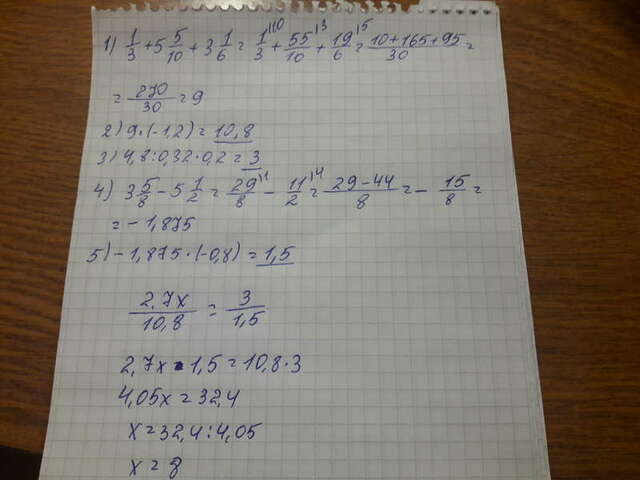 1) 1/3 + 5 5/10 + 3 1/6 = 1/3 + 55/10 + 19/6 = (10+165+95)/30 =
= 270/30 = 9
2) 9·(-1,2) = 10,8
3) 4,8·0,32·9,2 = 3
4) 3 5/8 - 5 1/2 = 29/8 - 11/2 = (29-44)/8 = - 15/8 =
= -1,875
5) -1,875·(-0,8) = 1,5
2,7x/10,8 = 3/1,5
2,7x·1,5 = 10,8·3
4,05x = 32,4
x = 32,4:4,05
x = 8